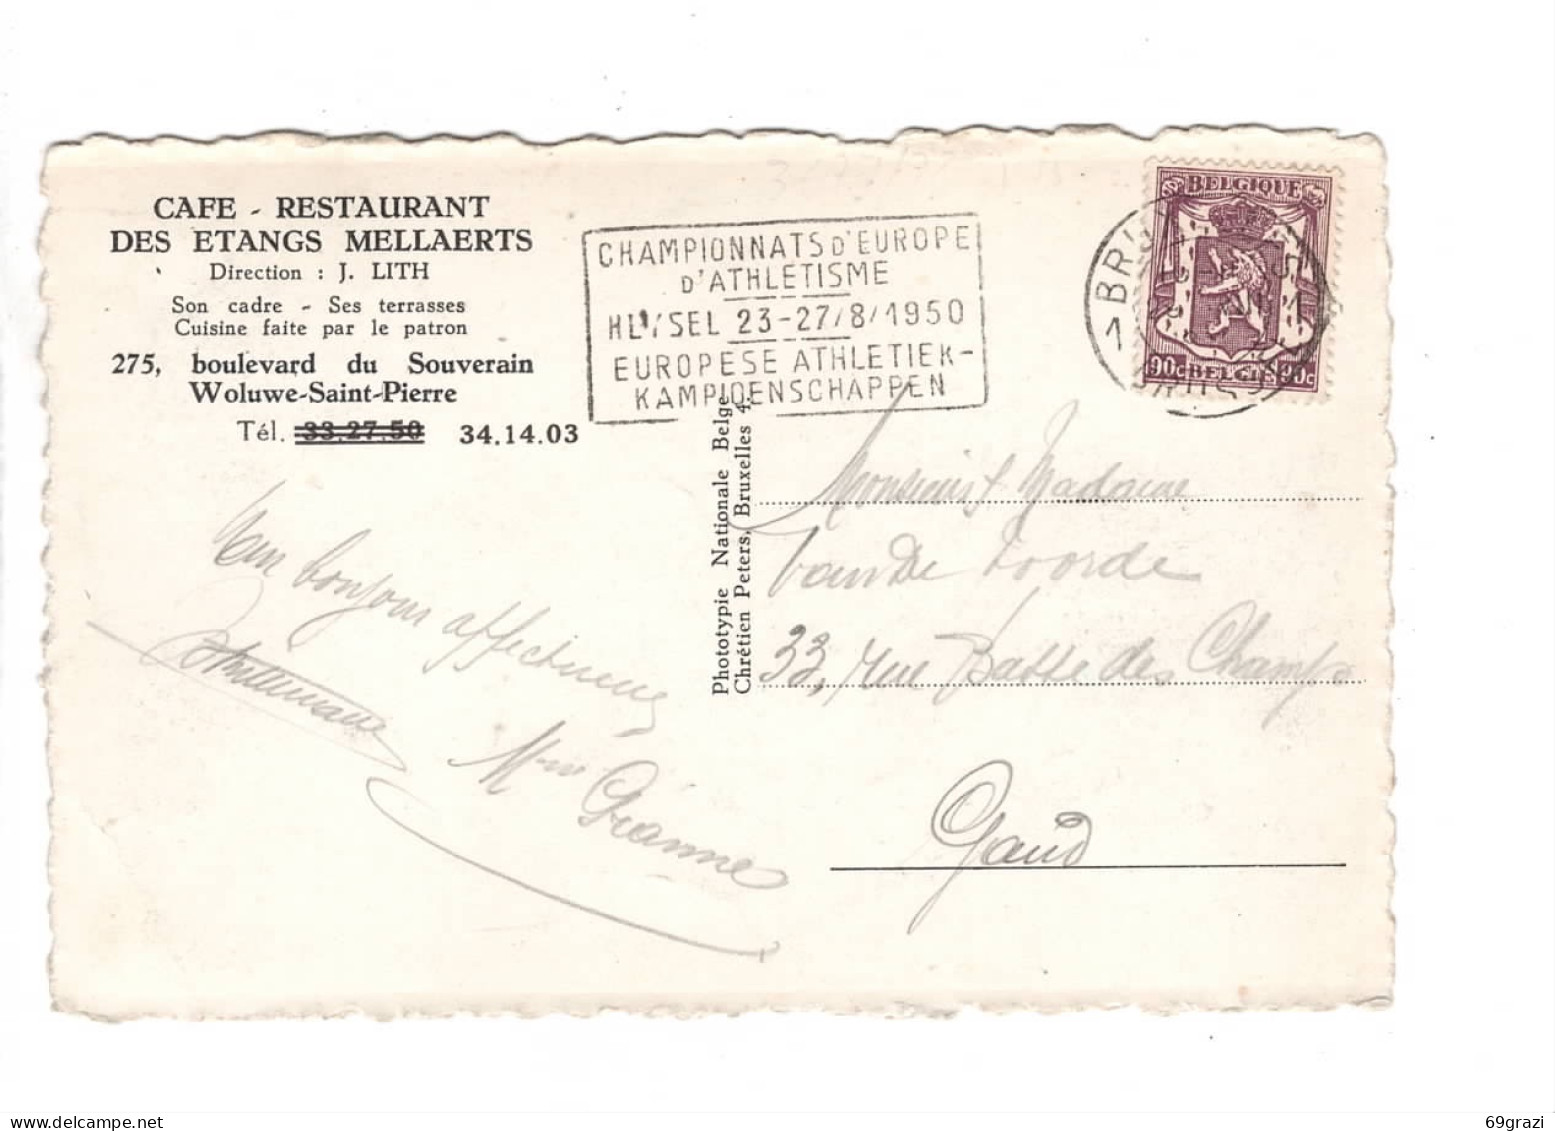 CAFE - RESTAURANT
DES ETANGS MELLAERTS
Direction : J. LITH
Son cadre - Ses terrasses
Cuisine faite par le patron
275, boulevard du Souverain
Woluwe-Saint-Pierre
Tél. 33.27.50 34.14.03
CHAMPIONNATS D'EUROPE
D'ATHLETISME
HEYSEL 23-27/8/1950
EUROPESE ATHLETIEK-
KAMPIOENSCHAPPEN
BELGIQUE
90c BELGIË 90c
1
Phototypie Nationale Belge
Chrétien Peters, Bruxelles 4.
bonjour affectueux
Monsieur & Madame
Van De Voorde
33, rue Basse des Champs
Gand
69grazi